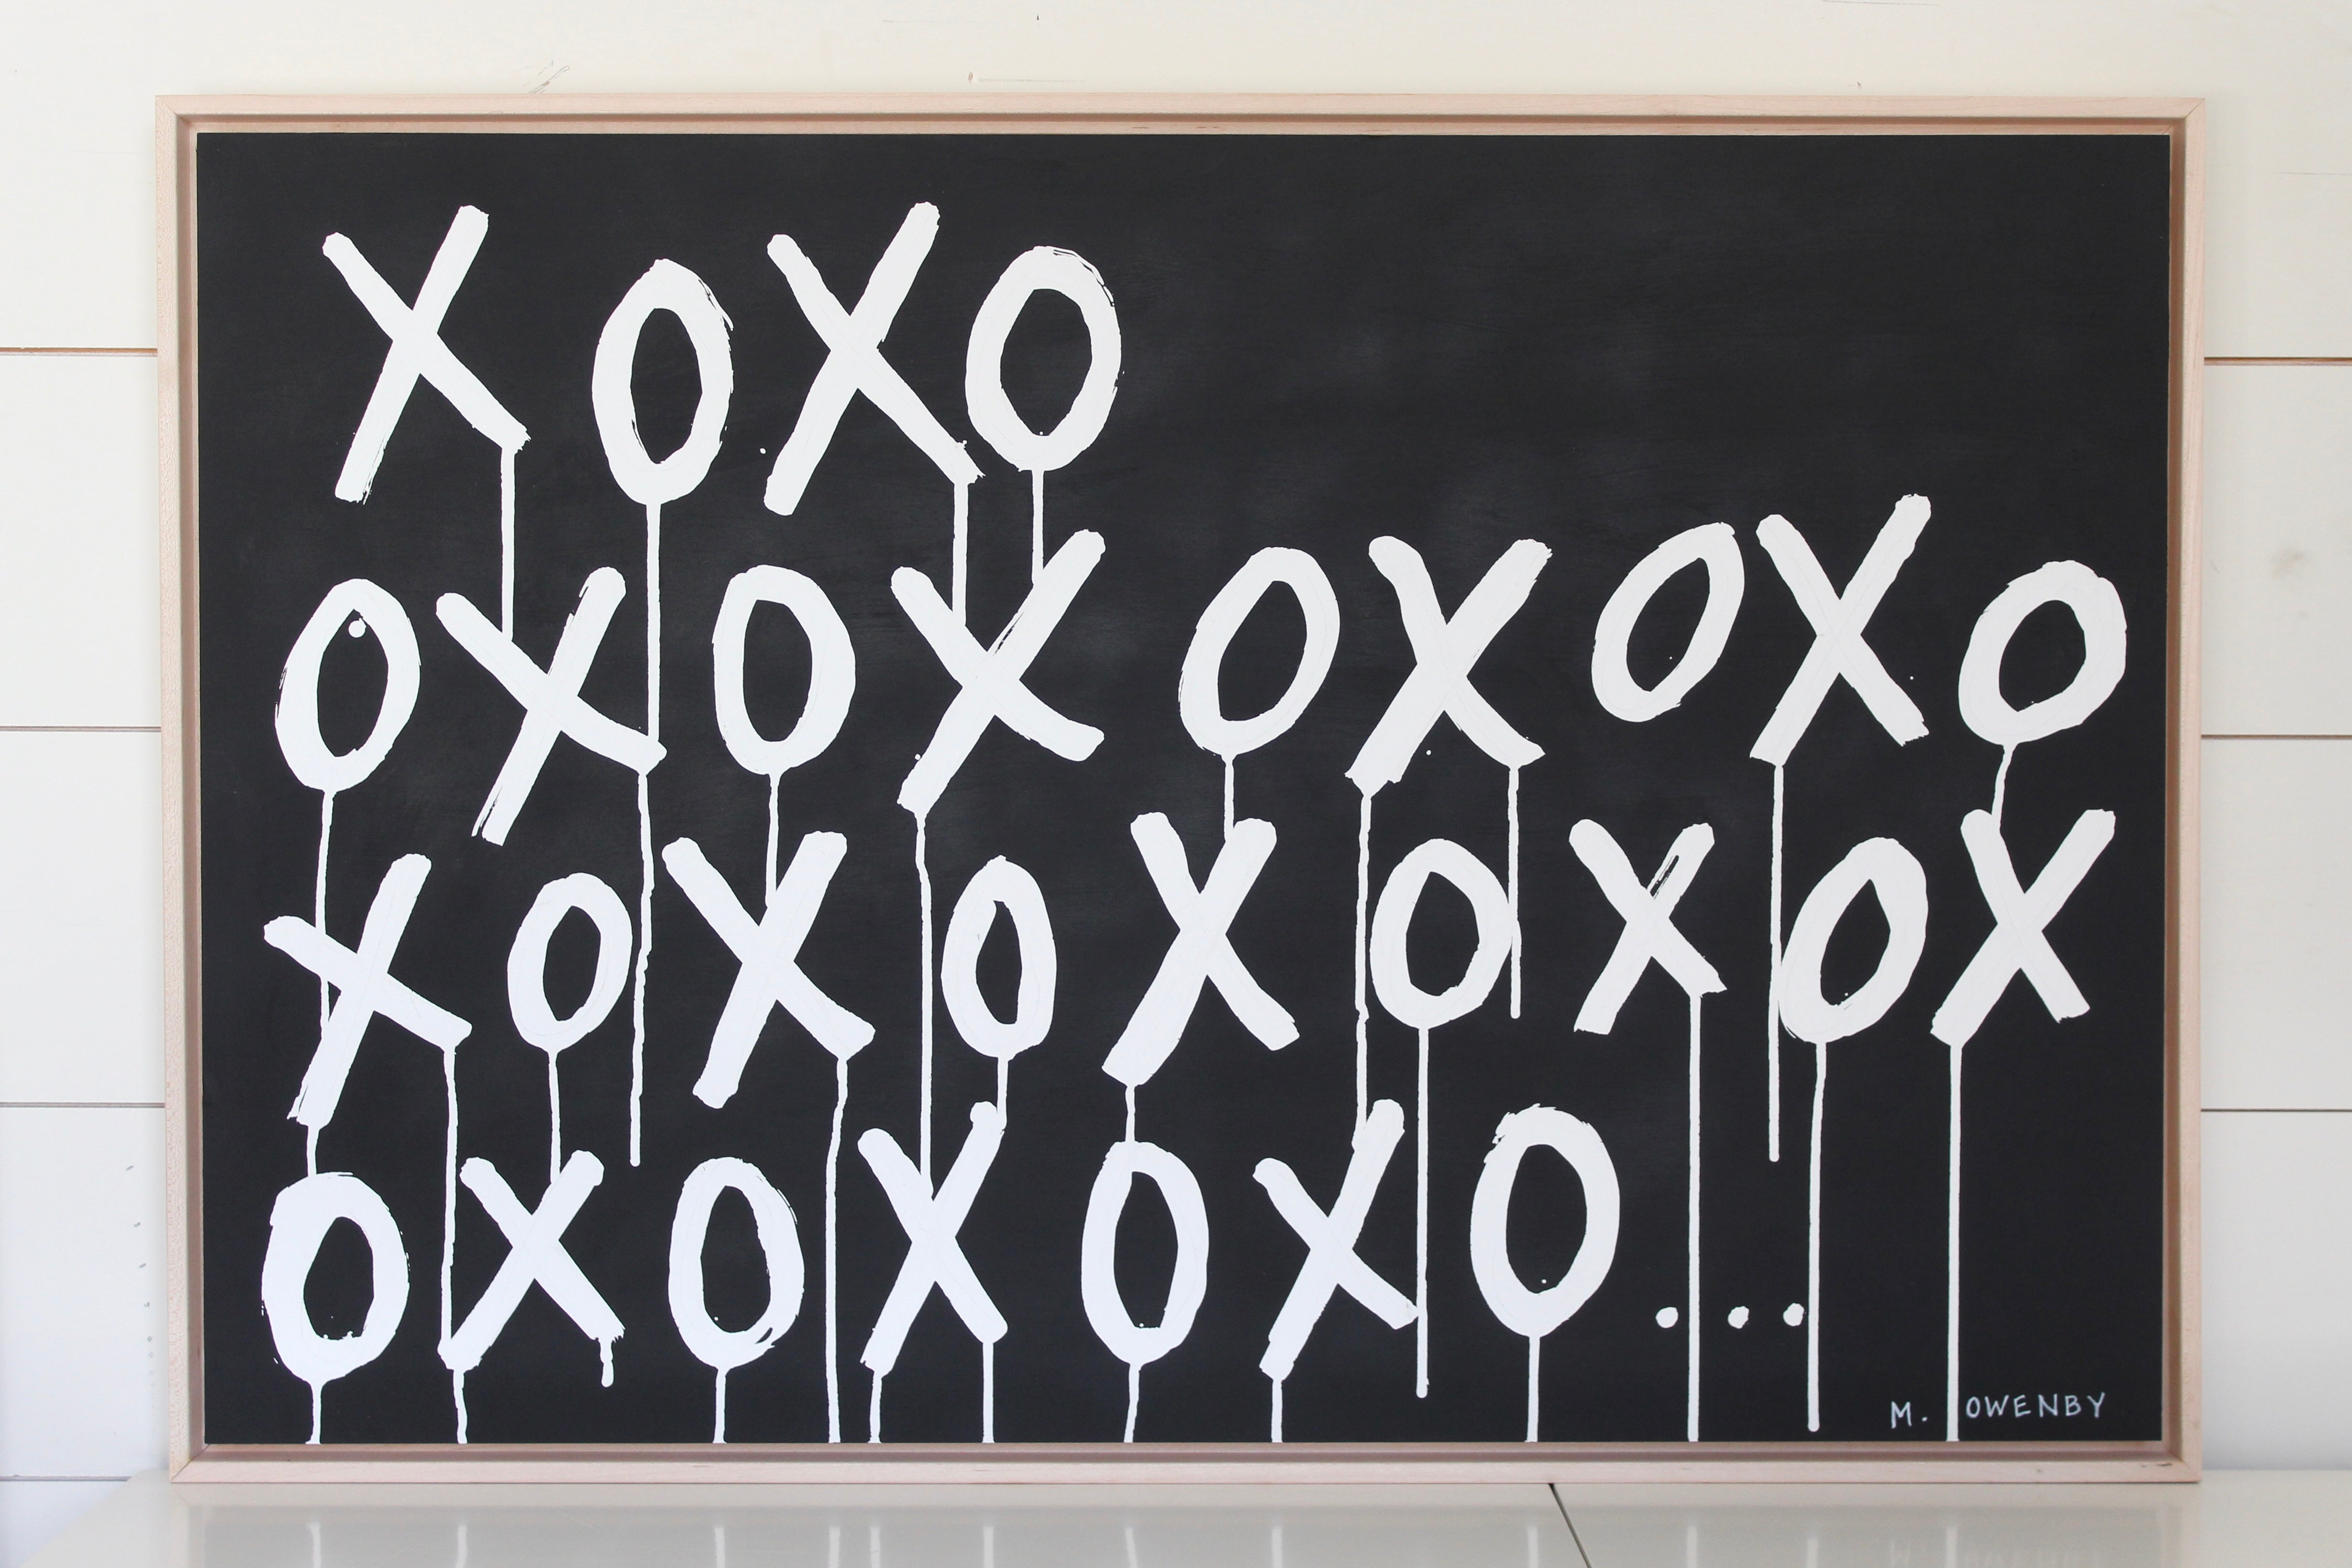 XOXO
OXOXOXOXO
XOXOXOXOX
OXOXOXO...
M. OWENBY